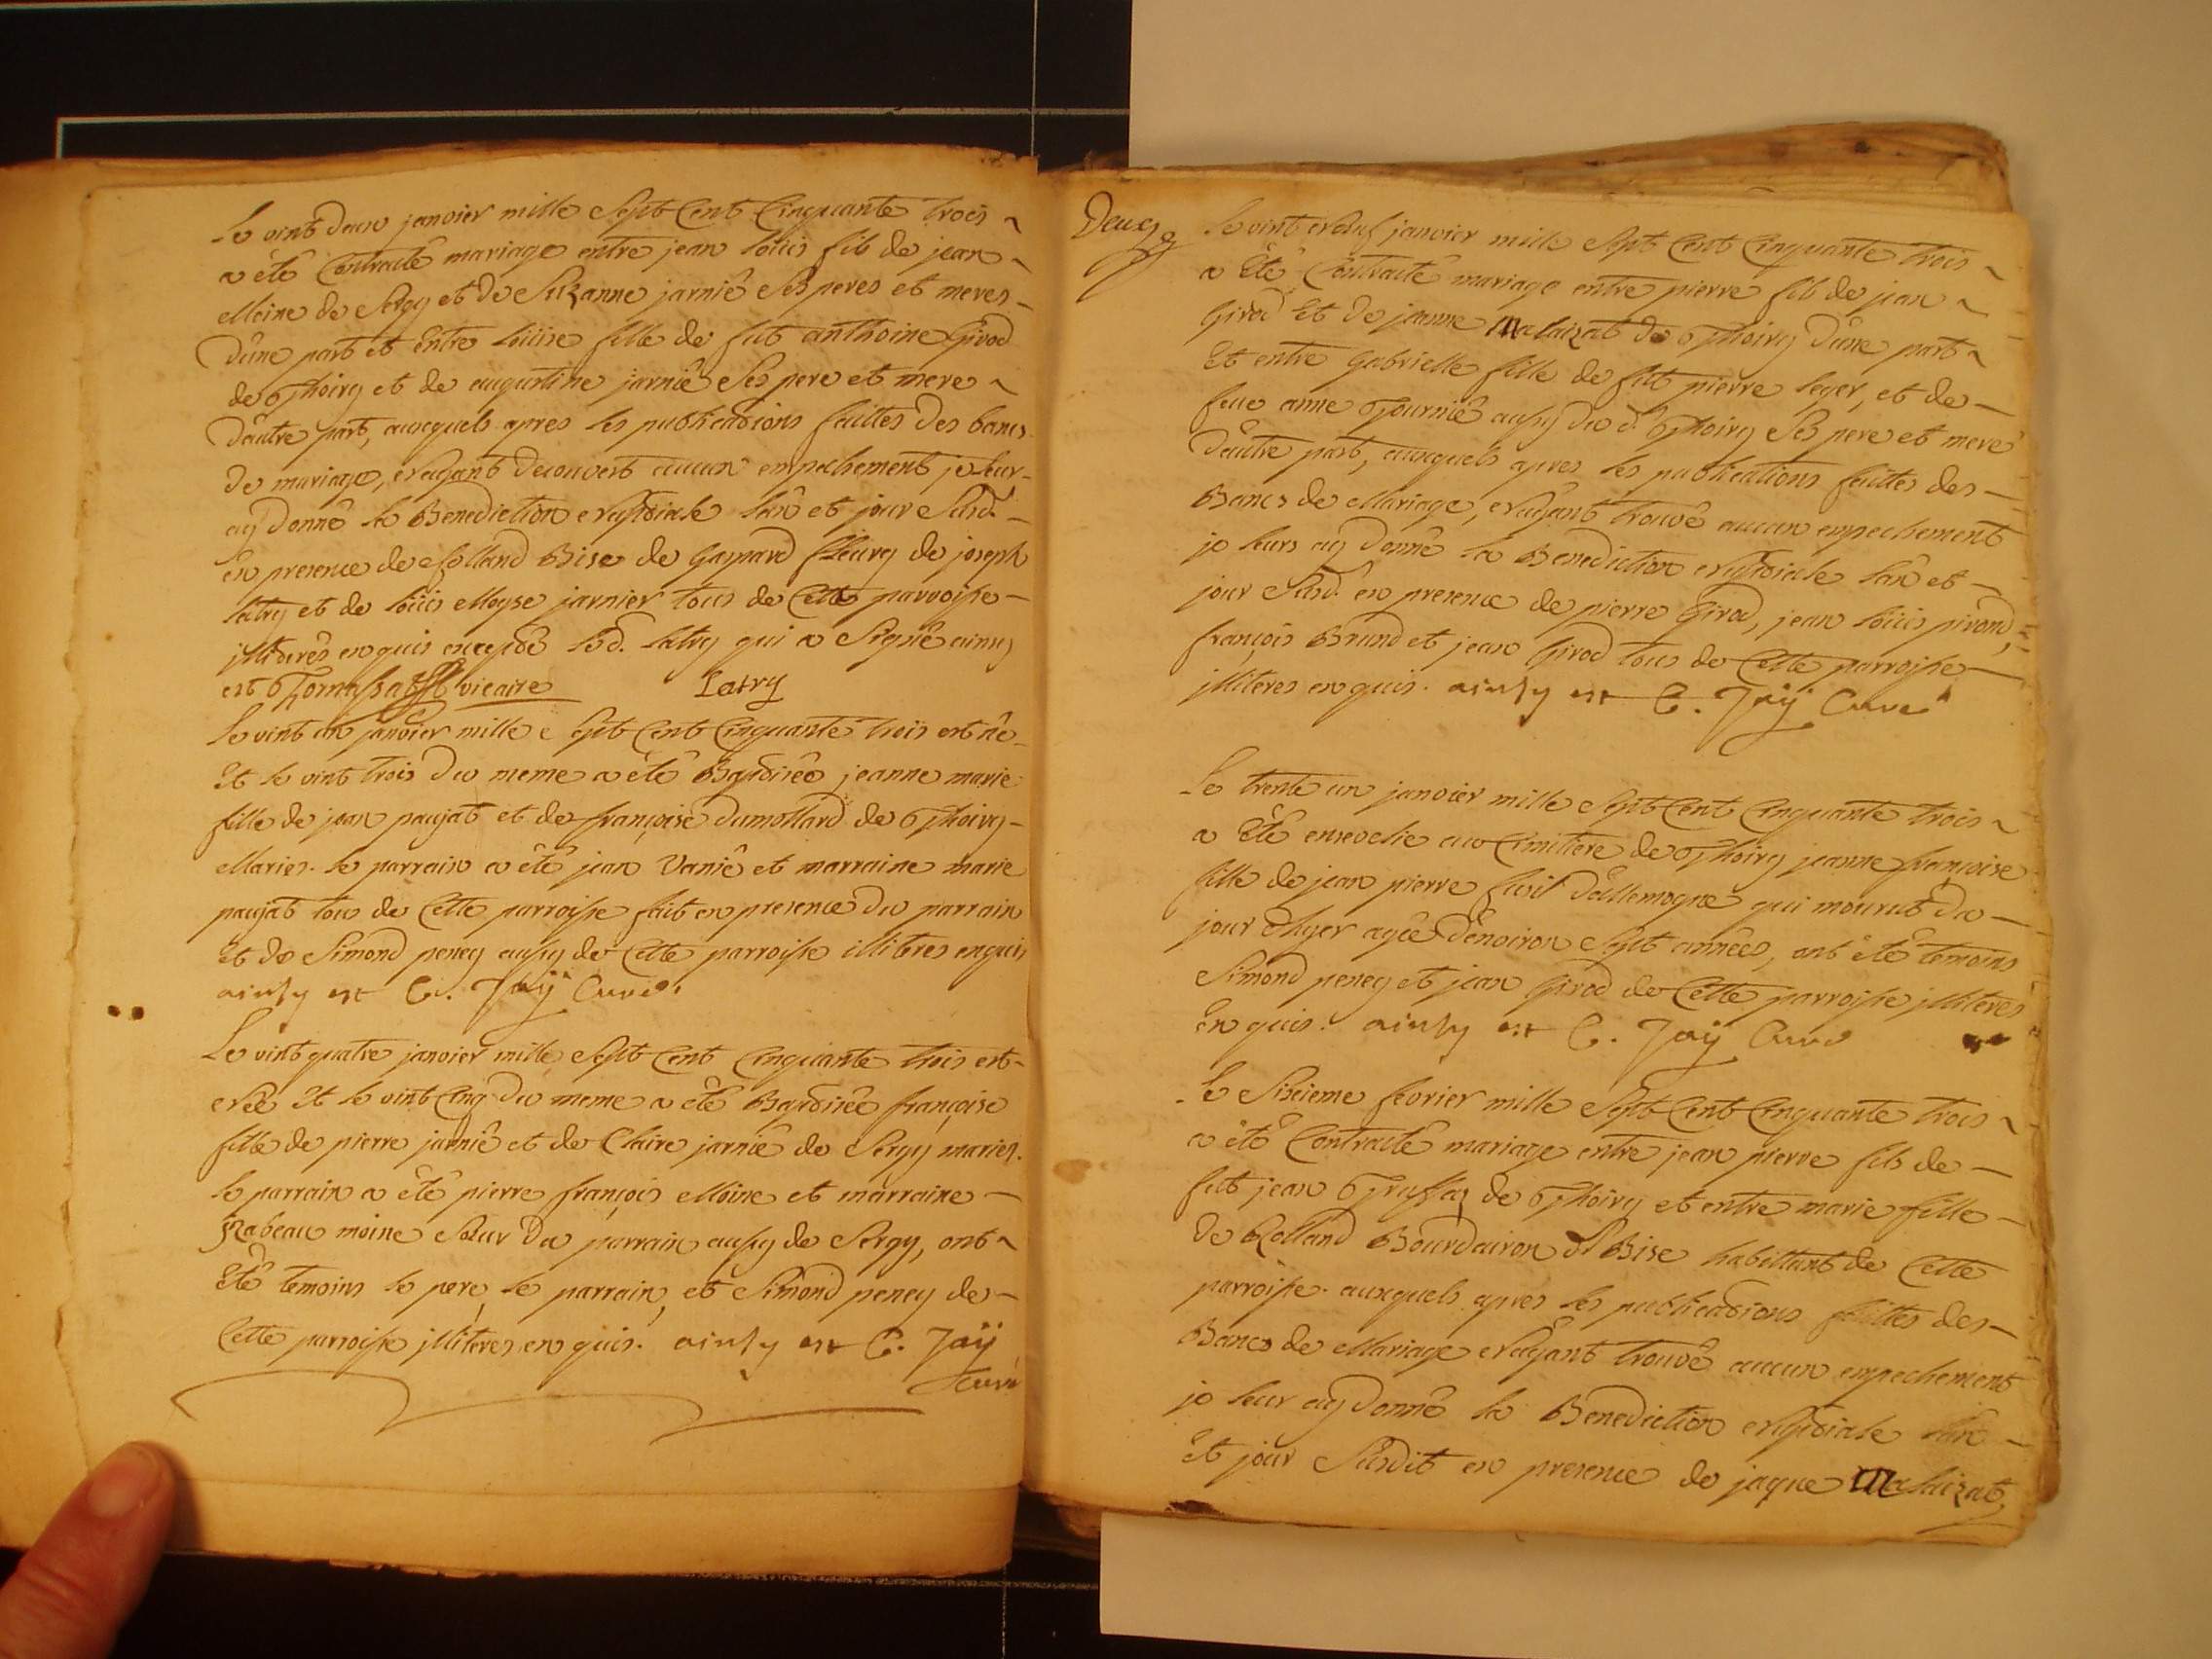 Le vint deux janvier mille Sept Cent Cinquante trois
a êté Contracté mariage entre jean loüis fils de jean
Moine de Sergy et de Suzanne jarniê Ses peres et meres
d'une part et Entre loüise fille de fut anthoine Girod
de Thoiry et de augustine jarniê Ses pere et mere
d'autre part, auxquels apres les publications faittes des bancs
de mariage, n'ayant decouvert aucun empechement je leur
ay donné la Benediction nuptiale l'an et jour Susd.
en presence de Rolland Bise de Gaspard fleury de joseph
latry et de loüis Moyse jarnier tous de Cette parroisse
illiterés enquis excepté led. latry qui a Signé ainsy
est Tornassat vicaire Latry
Le vint un janvier mille Sept Cent Cinquante trois est née
Et le vint trois du meme a êté Baptisée jeanne marie
fille de jean paujat et de françoise dumollard de Thoiry
Maries. le parrain a êté jean Vaniê et marraine marie
paujat tous de Cette parroisse fait en presence du parrain
Et de Simond peney aussy de Cette parroisse illitres enquis
ainsy est C. Jaÿ Curé.
Le vint quatre janvier mille Sept Cent Cinquante trois est
née Et le vint Cinq du meme a êté Baptisée françoise
fille de pierre jarniê et de Claire jarniê de Sergy maries.
le parrain a êté pierre françois Moine et marraine
Izabeau moine Sœur du parrain aussy de Sergy, ont
Eté temoins le pere, le parrain, et Simond peney de
Cette parroisse illiteres enquis. ainsy est C. Jaÿ
Curé
Deux
Le vint neuf janvier mille Sept Cent Cinquante trois
a Eté Contracté mariage entre pierre fils de jean
Girod Et de jeanne Malaizat de Thoiry d'une part
Et entre Gabrielle fille de fut pierre leger, et de
feue anne Tourniê aussy du d. Thoiry Ses pere et mere
d'autre part, auxquels apres les publications faittes des
Bancs de Mariage, n'ayant trouvé aucun empechement
je leurs ay donné la Benediction nuptiale l'an et
jour Susd. en presence de pierre Girod, jean loüis pirond,
françois Brund et jean Girod tous de Cette parroisse
illiteres enquis. ainsy est C. Jaÿ Curé
Le trente un janvier mille Sept Cent Cinquante trois
a Eté ensevelie au Cimitiere de Thoiry jeanne françoise
fille de jean pierre fusil d'allemogne qui mourut du
jour d'hyer agée d'environ Sept années, ont été temoins
Simond peney et jean Girod de Cette parroisse illiteres
enquis. ainsy est C. Jaÿ Curé
Le Sixieme fevrier mille Sept Cent Cinquante trois
a été Contracté mariage entre jean pierre fils de
fut jean Truffaz de Thoiry et entre marie fille
de Rolland Bourdairon dt Bise habittant de Cette
parroisse. auxquels apres les publications faittes des
Bancs de Mariage n'ayant trouvé aucun empechement
je leur ay donné la Benediction nuptiale l'an
Et jour Susdit en presence de jaque Malaizat,